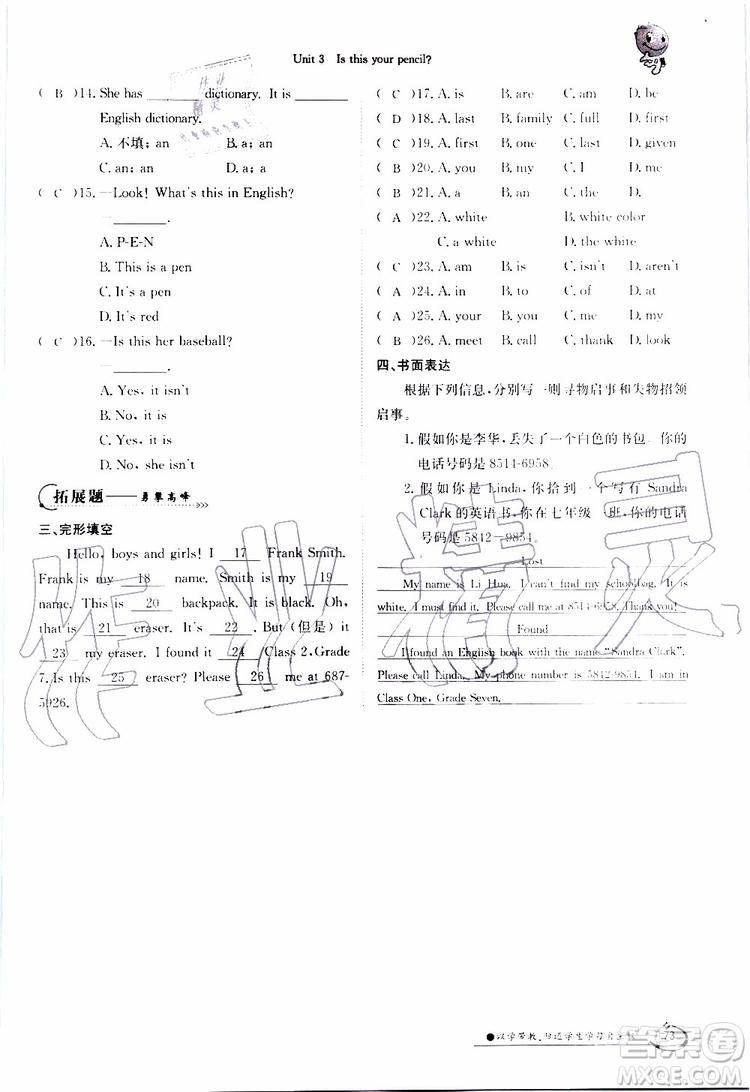 Unit 3 Is this your pencil?
( B )14. She has ______ dictionary. It is ______
English dictionary.
A. 不填；an B. an；a
C. an；an D. a；an
( C )15. —Look! What's this in English?
—______.
A. P-E-N
B. This is a pen
C. It's a pen
D. It's red
( C )16. —Is this her baseball?
—______.
A. Yes, it isn't
B. No, it is
C. Yes, it is
D. No, she isn't
拓展题——勇攀高峰
三、完形填空
Hello, boys and girls! I 17 Frank Smith.
Frank is my 18 name. Smith is my 19
name. This is 20 backpack. It is black. Oh,
that is 21 eraser. It is 22 . But (但是) it
23 my eraser. I found it 24 Class 2, Grade
7. Is this 25 eraser? Please 26 me at 687-
5926.
( C )17. A. is B. are C. am D. be
( D )18. A. last B. family C. full D. first
( C )19. A. first B. one C. last D. given
( B )20. A. you B. my C. I D. me
( B )21. A. a B. an C. the D. /
( A )22. A. white B. white color
C. a white D. the white
( C )23. A. am B. is C. isn't D. aren't
( A )24. A. in B. to C. of D. at
( A )25. A. your B. you C. I D. me
( B )26. A. meet B. call C. thank D. look
四、书面表达
根据下列信息，分别写一则寻物启事和失物招领
启事。
1. 假如你是李华，丢失了一个白色的书包，你的
电话号码是 8514-6958。
2. 假如你是 Linda，你拾到一个写有 Sandra
Clark 的英语书，你在七年级一班，你的电话
号码是 5842-9854。
Lost
My name is Li Hua. I can't find my schoolbag. It is
white. I must find it. Please call me at 8514-6958. Thank you!
Found
I found an English book with the name "Sandra Clark".
Please call Linda. My phone number is 5842-9854. I am in
Class One, Grade Seven.
作业精灵
●以学带教，
73
答案圈
MXQE.COM